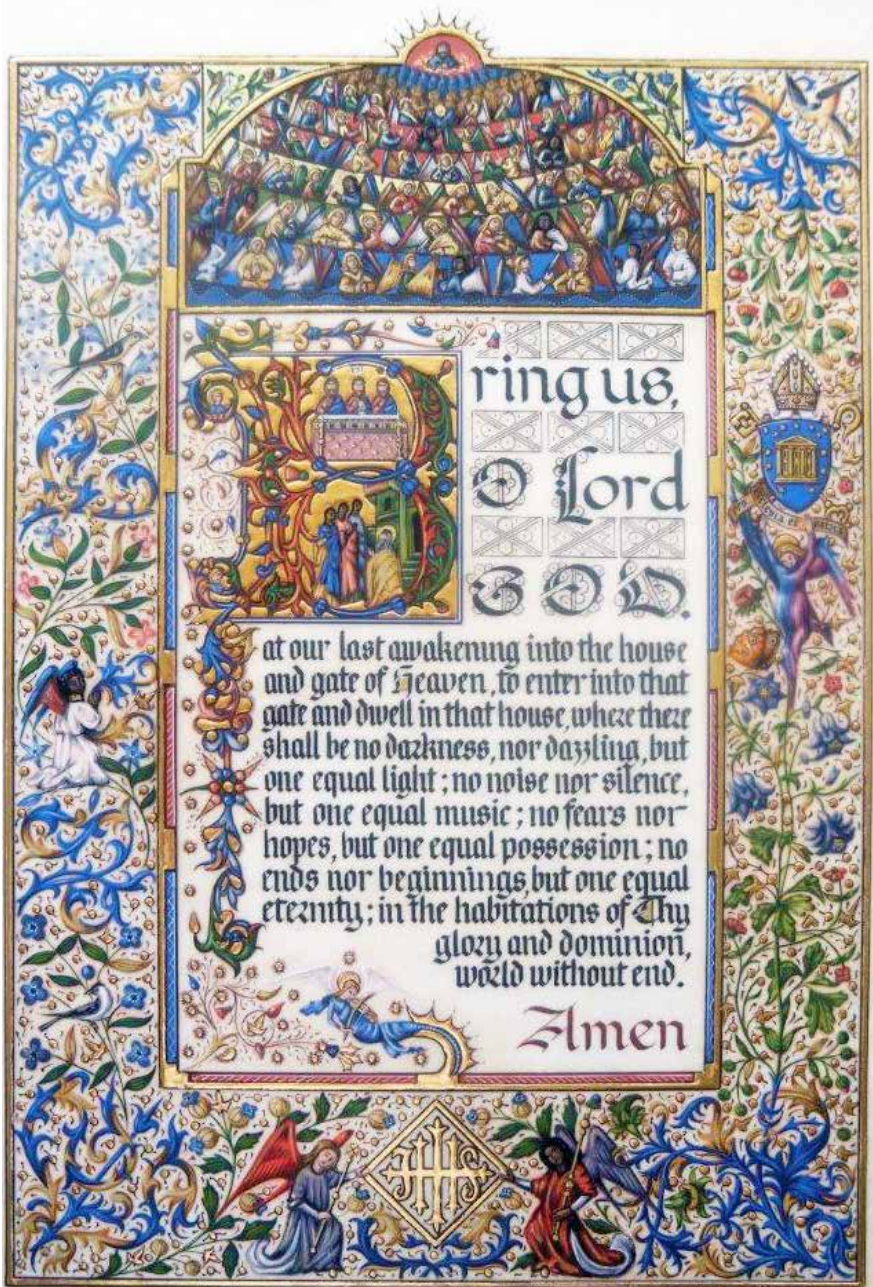 Bring us,
O Lord
GOD.
at our last awakening into the house
and gate of Heaven, to enter into that
gate and dwell in that house, where there
shall be no darkness, nor dazzling, but
one equal light; no noise nor silence,
but one equal music; no fears nor
hopes, but one equal possession; no
ends nor beginnings, but one equal
eternity; in the habitations of Thy
glory and dominion,
world without end.
Amen
IHS